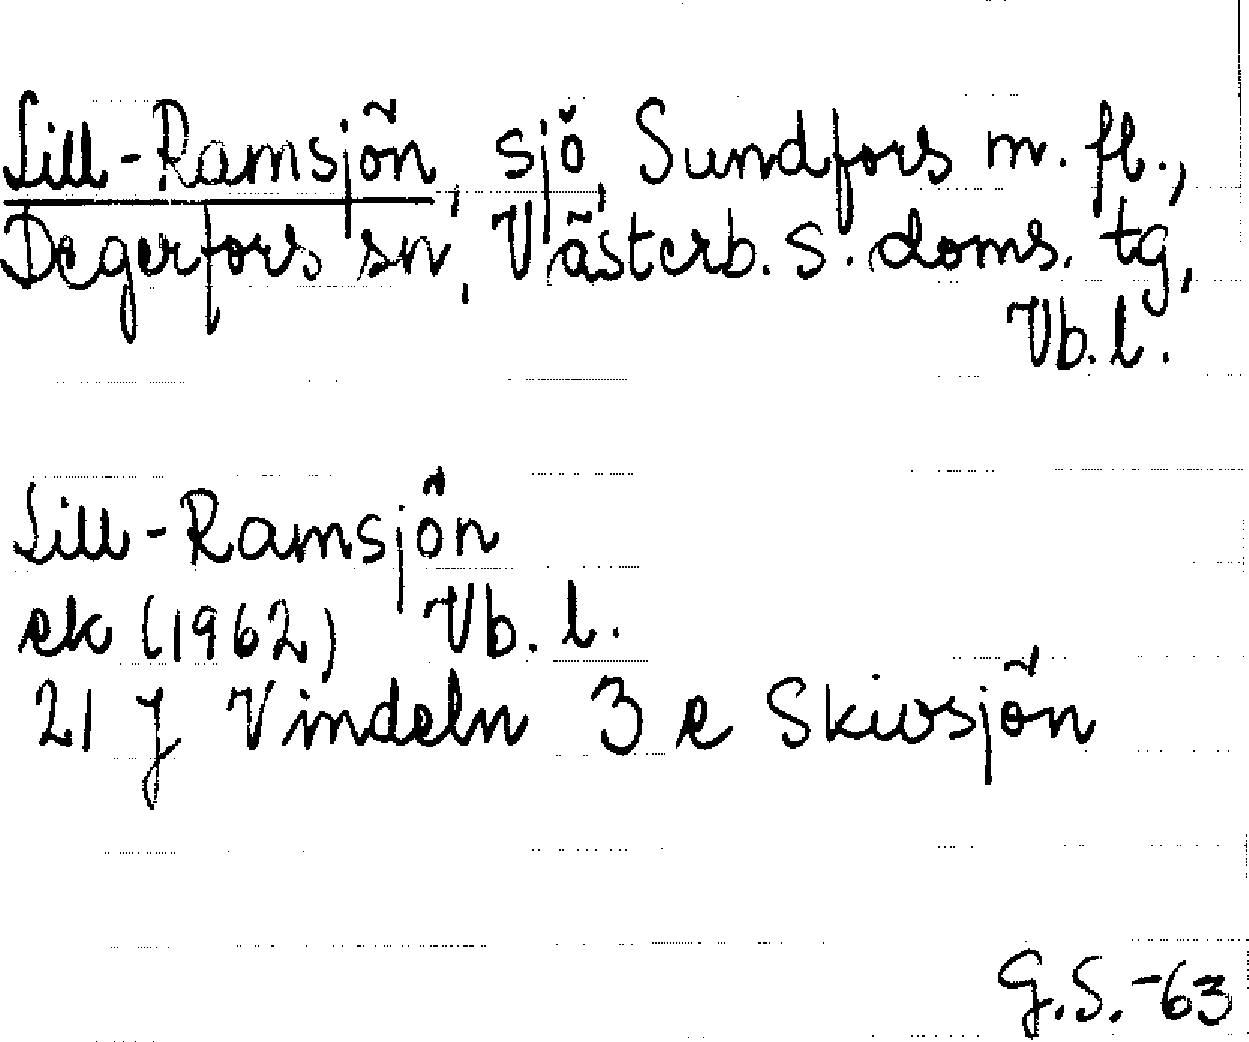 Lill-Ramsjön, sjö, Sundfors m. fl.,
Degerfors sn, Västerb. s. doms. tg,
Vb. l.
Lill-Ramsjön
ek (1962) Vb. l.
21 J Vindeln 3 e Skivsjön
G.S.-63